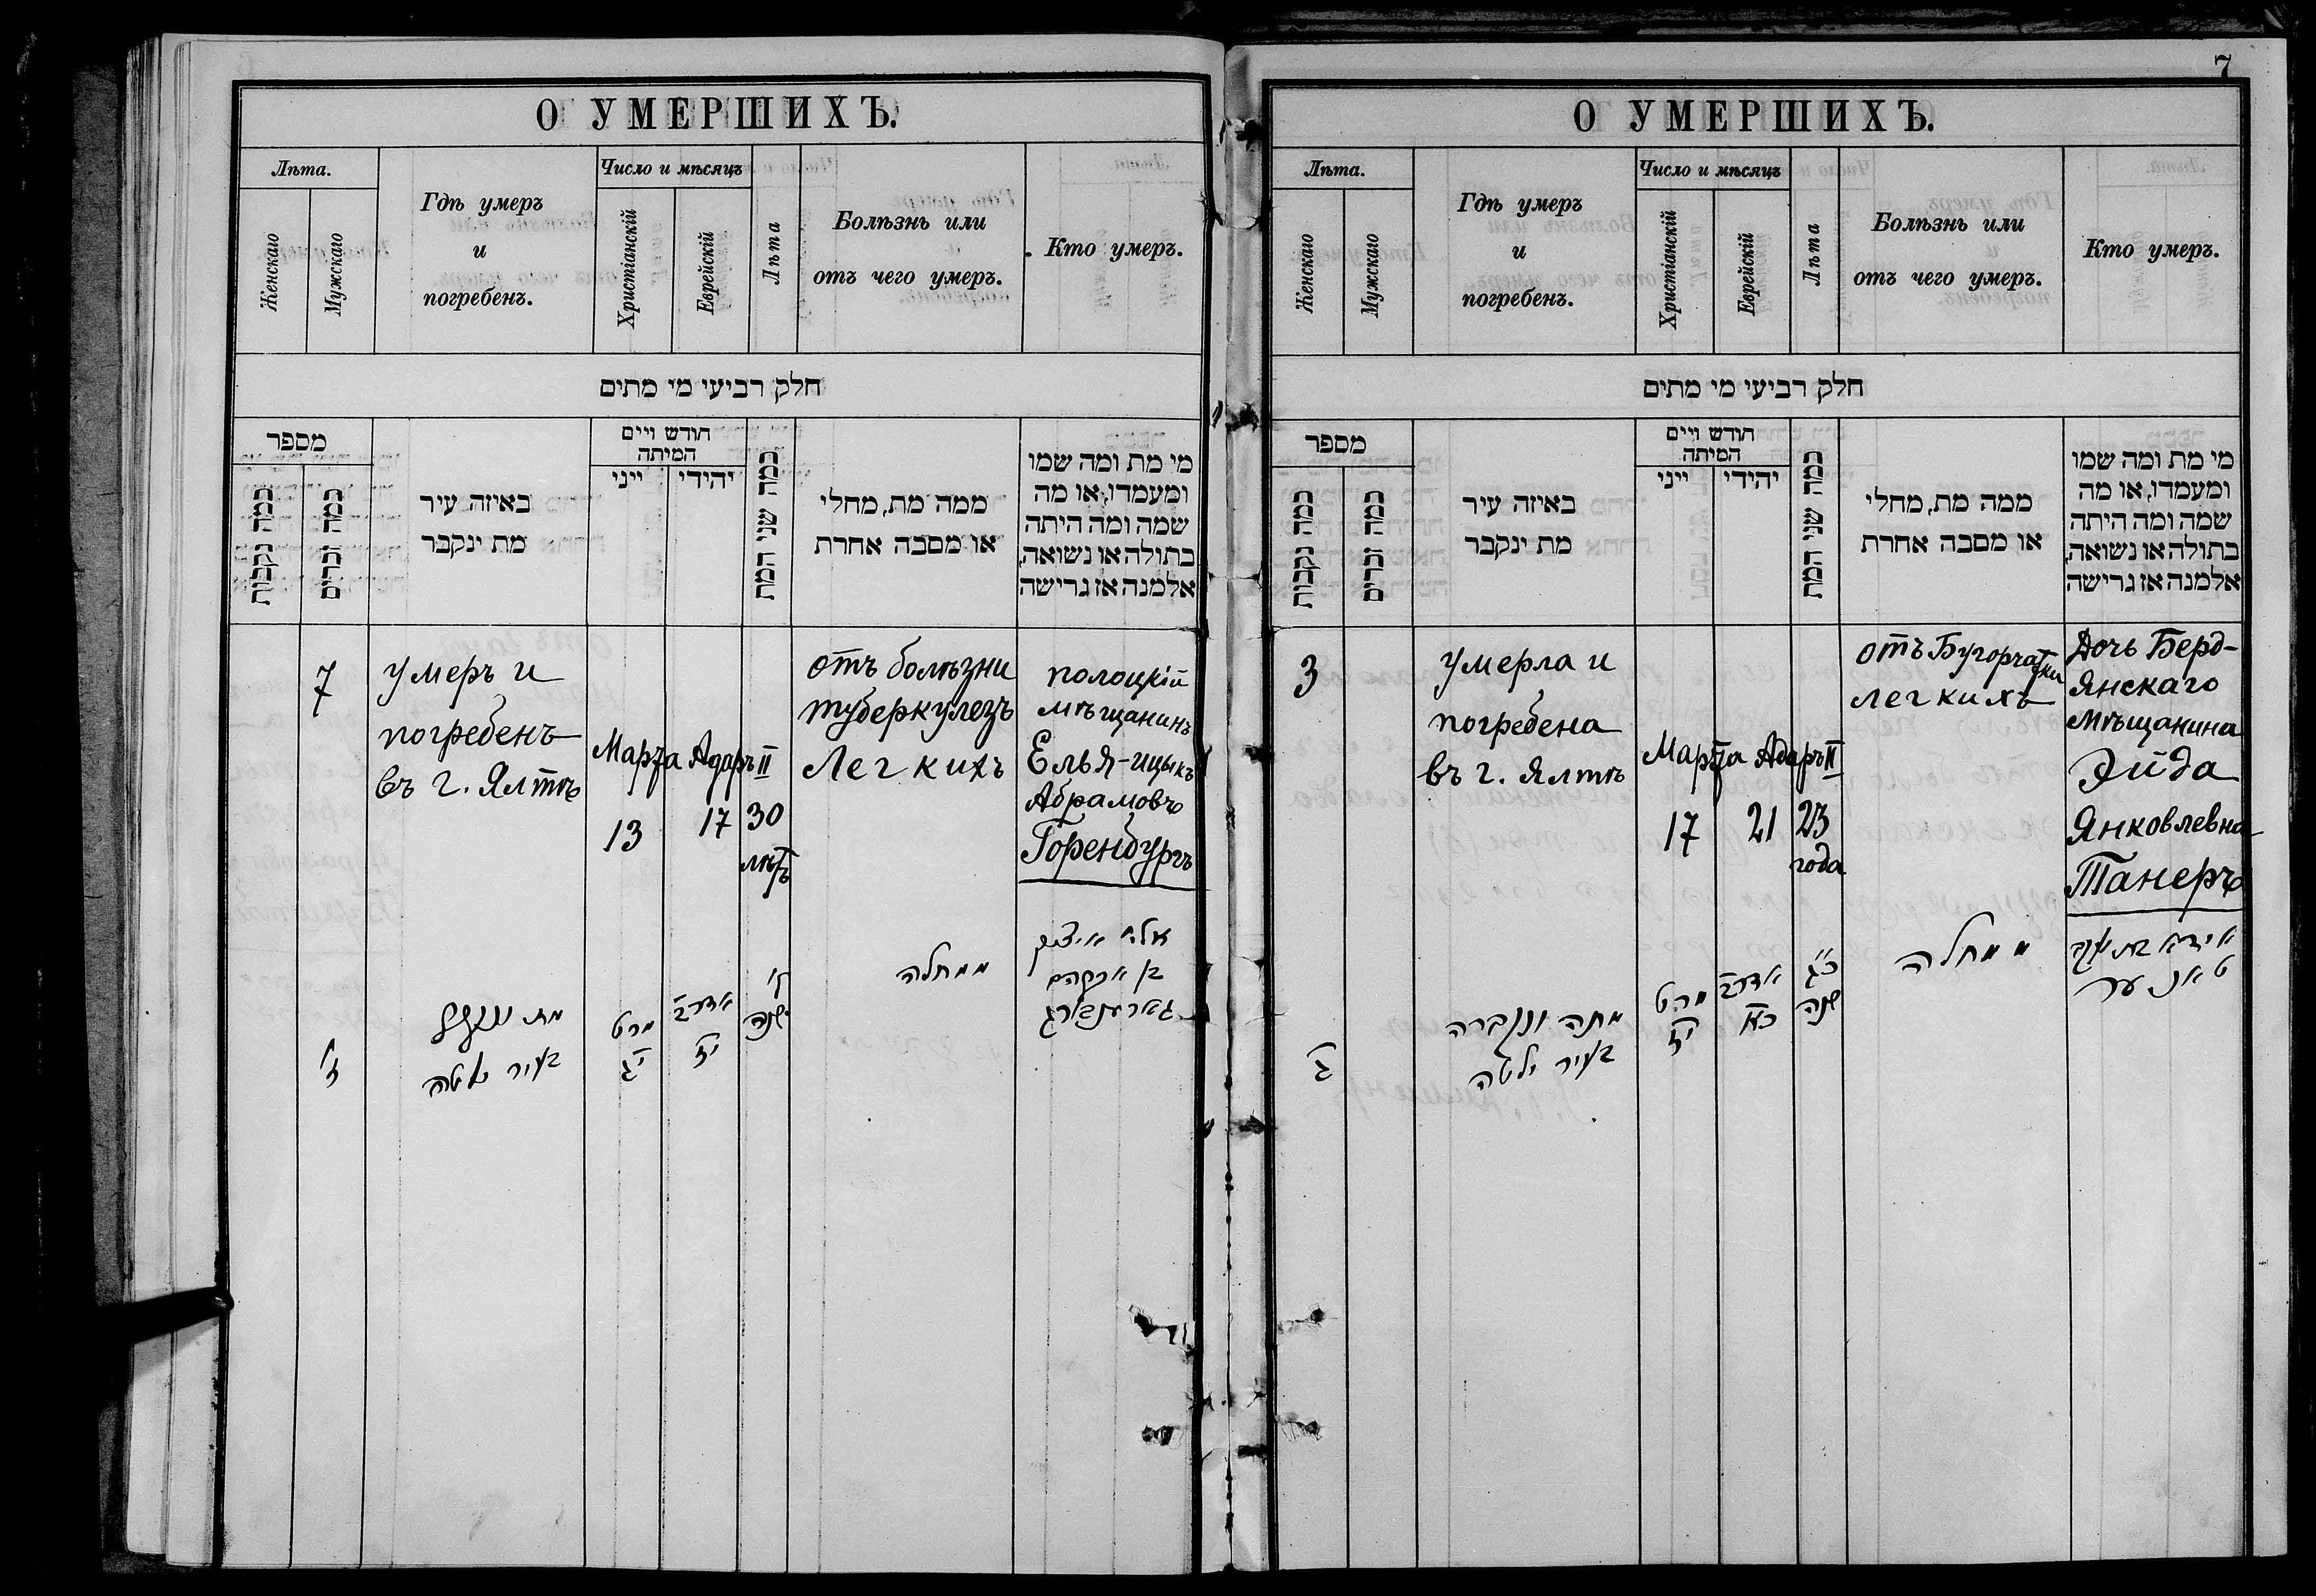 О УМЕРШИХЪ.
Лѣта.
Женскаго
Мужскаго
Гдѣ умеръ
и
погребенъ.
Число и мѣсяцъ
Христіанскій
Еврейскій
Лѣта
Болѣзнь или
отъ чего умеръ.
Кто умеръ.
חלק רביעי מי מתים
מספר
כמה נקבות
כמה זכרים
באיזה עיר
מת ינקבר
חודש ויים
המיתה
ייני
יהודי
כמה שני המת
ממה מת, מחלי
או מסבה אחרת
מי מת ומה שמו
ומעמדו, או מה
שמה ומה היתה
בתולה או נשואה,
אלמנה אז גרישה
7
умеръ и
погребенъ
въ г. Ялтѣ
Марта Адаръ II
13
17
30
лѣтъ
отъ болѣзни
туберкулезъ
Легкихъ
полоцкій
мѣщанинъ
Елья-ицыкъ
Абрамовъ
Горенбургъ
ז'
מת
בעיר יאלטה
מרט
יג
אדר ב
יז
ל'
שנה
ממחלה
אלי' איציק
בן אברהם
7
О УМЕРШИХЪ.
Лѣта.
Женскаго
Мужскаго
Гдѣ умеръ
и
погребенъ.
Число и мѣсяцъ
Христіанскій
Еврейскій
Лѣта
Болѣзнь или
отъ чего умеръ.
Кто умеръ.
חלק רביעי מי מתים
מספר
כמה נקבות
כמה זכרים
באיזה עיר
מת ינקבר
חודש ויים
המיתה
ייני
יהידי
כמה שני המת
ממה מת, מחלי
או מסבה אחרת
מי מת ומה שמו
ומעמדו, או מה
שמה ומה היתה
בתולה או נשואה,
אלמנה אז גרישה
3
умерла и
погребена
въ г. Ялтѣ
Марта Адаръ II
17
21
23
года
отъ Бугорчатки
легкихъ
Дочь Берд-
янскаго
мѣщанина
Эйда
Янковлевна
Танеръ
ג'
מתה ונקברה
בעיר ילטה
מרט
יז
אדר ב
כא
כ"ג
שנה
ממחלה
איידא בת יעקב
טאנער